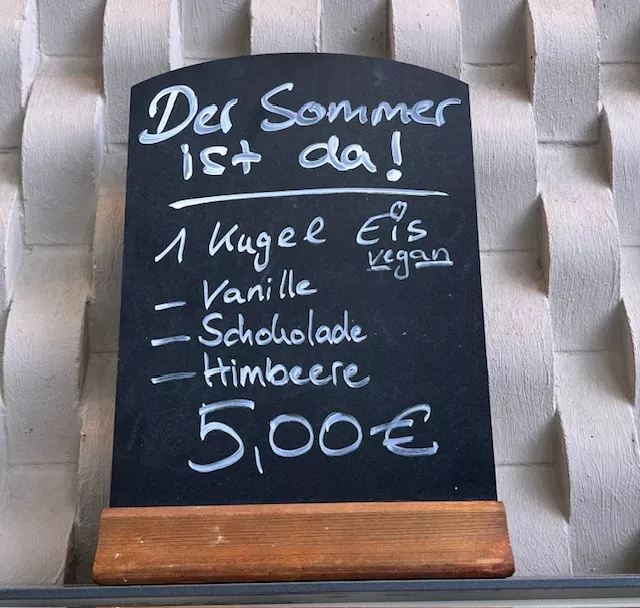 Der Sommer
ist da!
1 Kugel Eis
vegan
- Vanille
- Schokolade
- Himbeere
5,00€